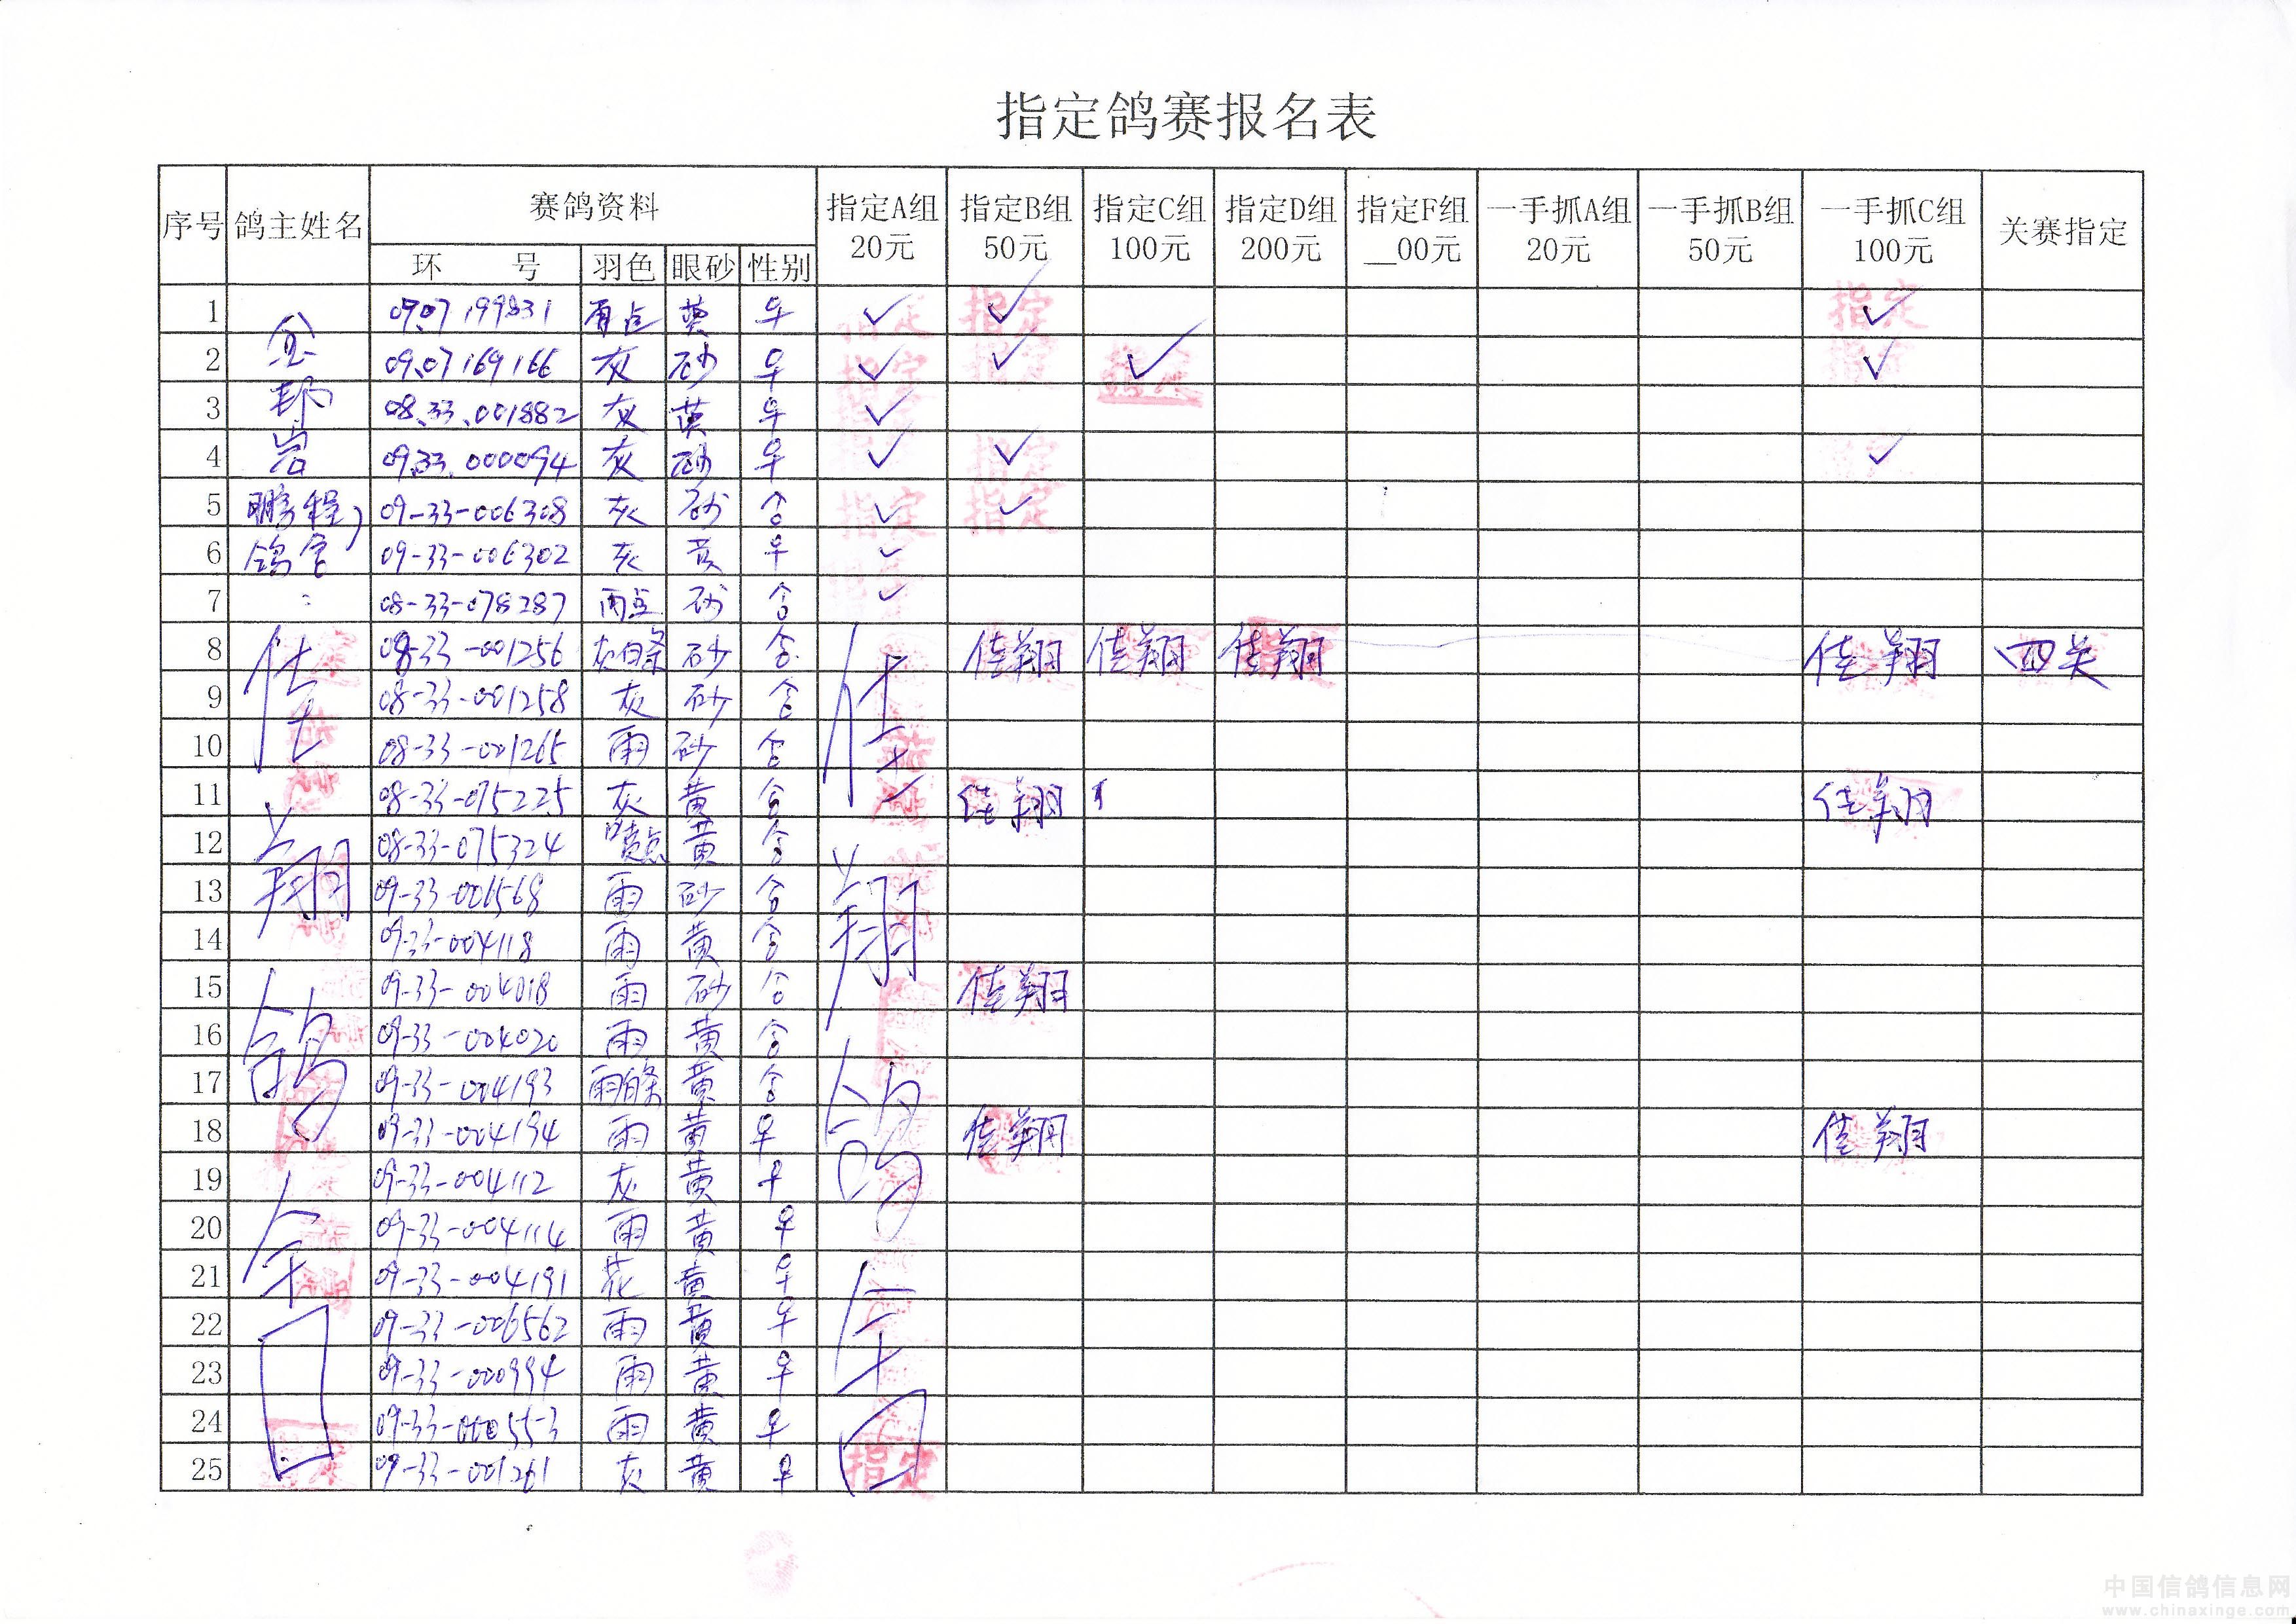 指定鸽赛报名表
序号 鸽主姓名 赛鸽资料 指定A组 20元 指定B组 50元 指定C组 100元 指定D组 200元 指定F组 __00元 一手抓A组 20元 一手抓B组 50元 一手抓C组 100元 关赛指定
环 号 羽色 眼砂 性别
1 黄 ✓ ✓ ✓ 指定 指定 指定
2 09.07 169166 灰 砂 ✓ ✓ ✓ ✓
3 08.33.001882 灰 黄 ✓
4 岩 09.33.000094 灰 砂 ✓ ✓ ✓
5 鹏程 09-33-006308 灰 砂 ✓ ✓ 指定 指定
6 鸽舍 09-33-006302 灰 黄 ✓
7 08-33-078287 雨点 砂 ✓
8 佳 08-33-001256 灰白条 砂 佳 佳翔 佳翔 佳翔 佳翔 四关
9 08-33-001258 灰 砂
10 08-33-001265 雨 砂
11 08-33-075225 灰 黄 佳翔 佳翔
12 翔 08-33-075324 黄 翔
13 09-33-001568 雨 砂
14 09-33-004118 雨 黄
15 09-33-004018 雨 砂 佳翔
16 鸽 09-33-004020 雨 黄 鸽
17 09-33-004193 雨白条 黄
18 09-33-004194 雨 黄 佳翔 佳翔
19 09-33-004112 灰 黄
20 舍 09-33-004114 雨 黄 舍
21 09-33-004191 花 黄
22 09-33-006562 雨 黄
23 09-33-000994 雨 黄
24 09-33-000553 雨 黄
25 09-33-001261 灰 黄 指定
中国信鸽信息网
www.chinaxinge.com